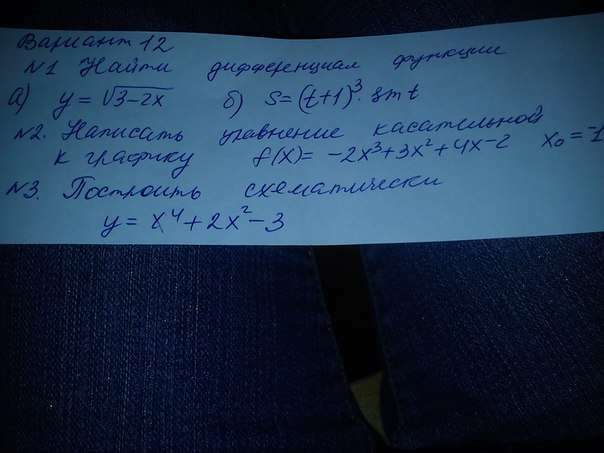 Вариант 12
№1 Найти дифференциал функции
а) y = √3-2x б) S = (t+1)³. sin t
№2. Написать уравнение касательной
к графику f(x) = -2x³+3x²+4x-2 x₀ = -1
№3. Построить схематически
y = x⁴ + 2x² - 3